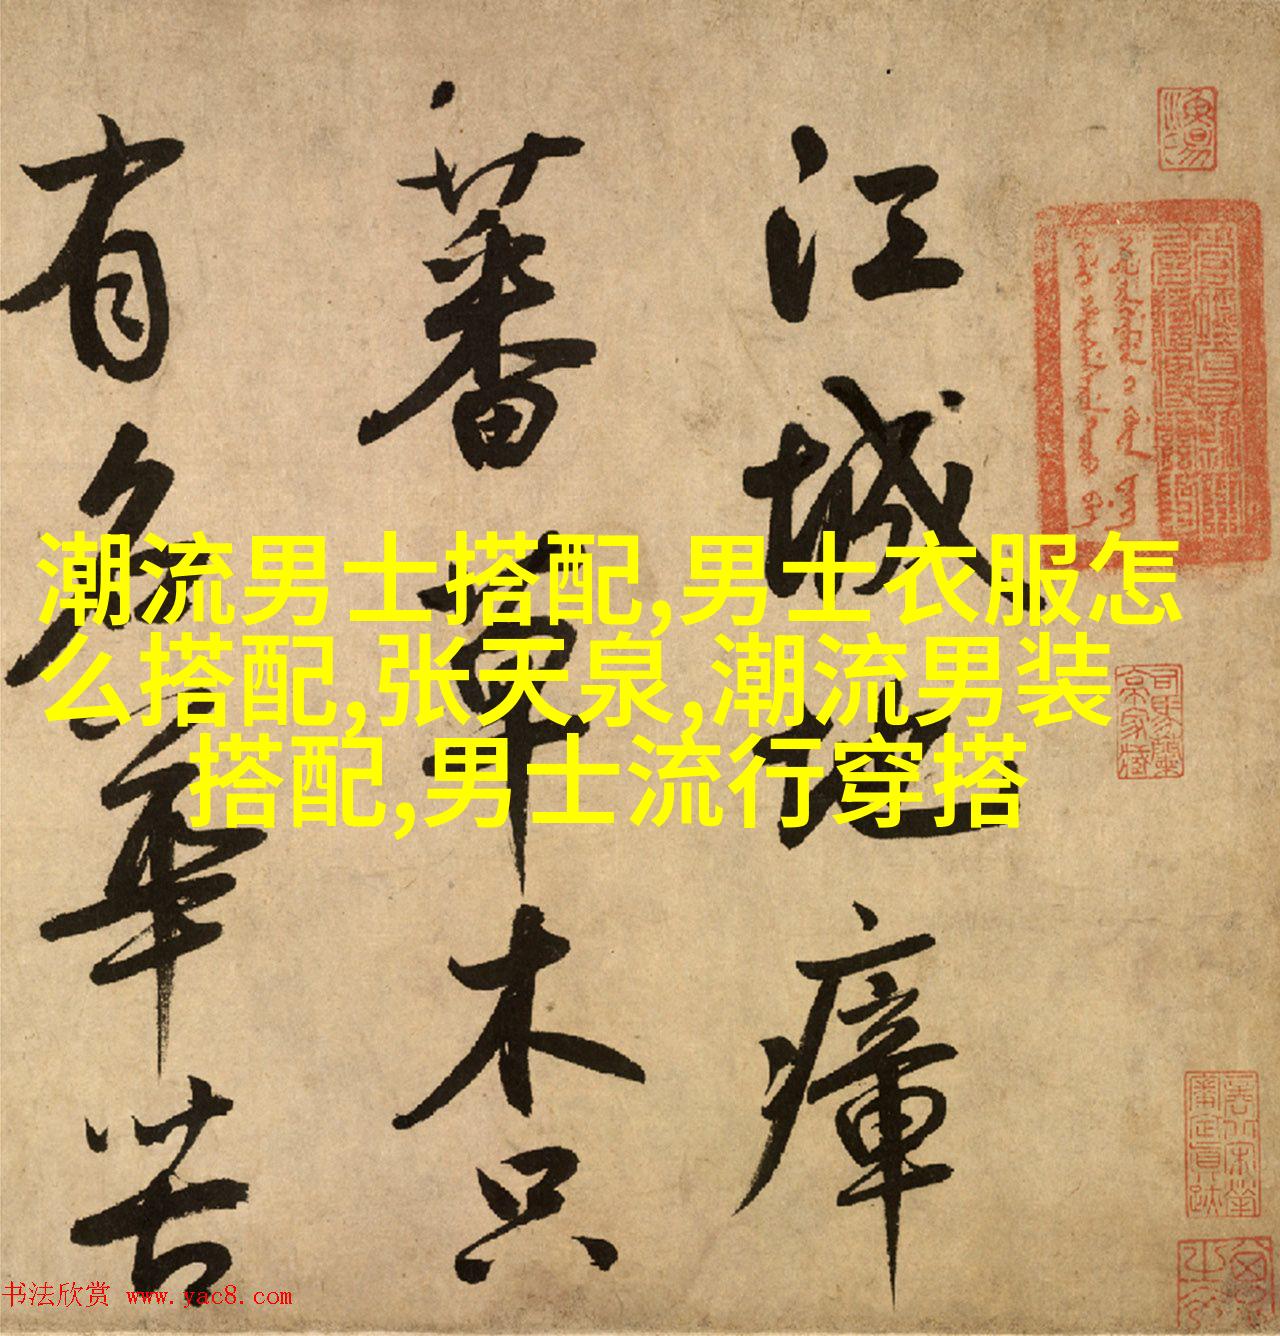 江城地瘴
蕃草木只
有名華苦
潮流男士搭配,男士衣服怎
么搭配,张天泉,潮流男装
搭配,男士流行穿搭
书法欣赏 www.yac8.com